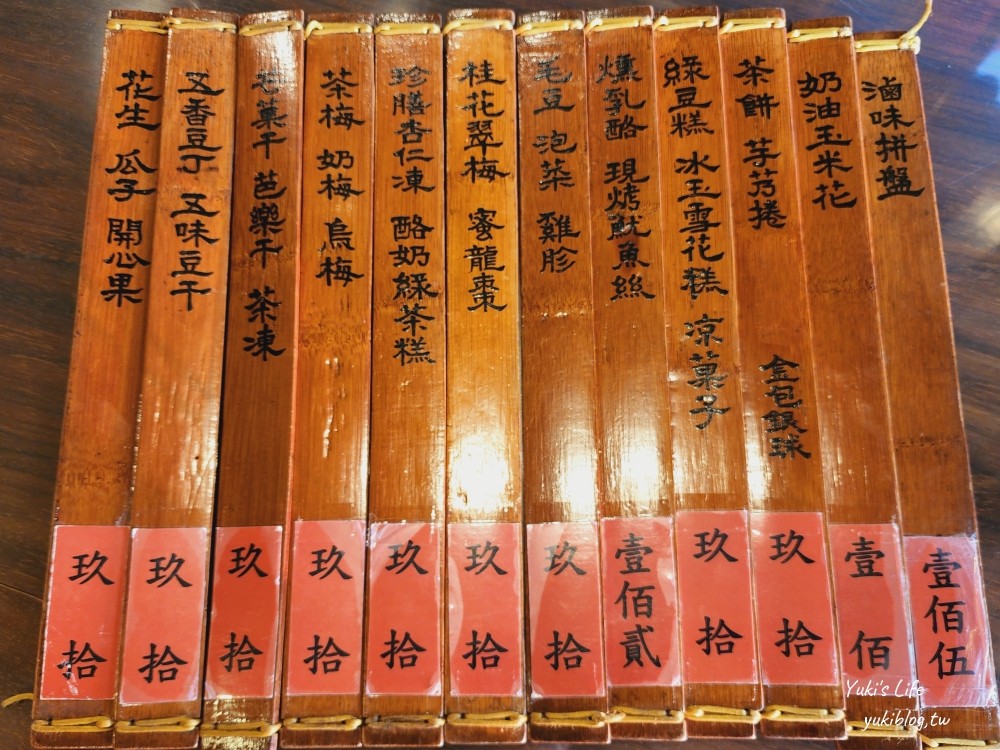 滷味拼盤
壹佰伍
奶油玉米花
壹佰
茶餅 芋艿捲 金包銀珠
玖拾
綠豆糕 冰玉雪花糕 涼菓子
玖拾
燻乳酪 現烤魷魚絲
壹佰貳
毛豆 泡菜 雞胗
玖拾
桂花翠梅 蜜龍棗
玖拾
珍膳杏仁凍 酪奶綠茶糕
玖拾
茶梅 奶梅 烏梅
玖拾
芒菓干 芭樂干 茶凍
玖拾
五香豆丁 五味豆干
玖拾
花生 瓜子 開心果
玖拾
Yuki's Life
yukiblog.tw